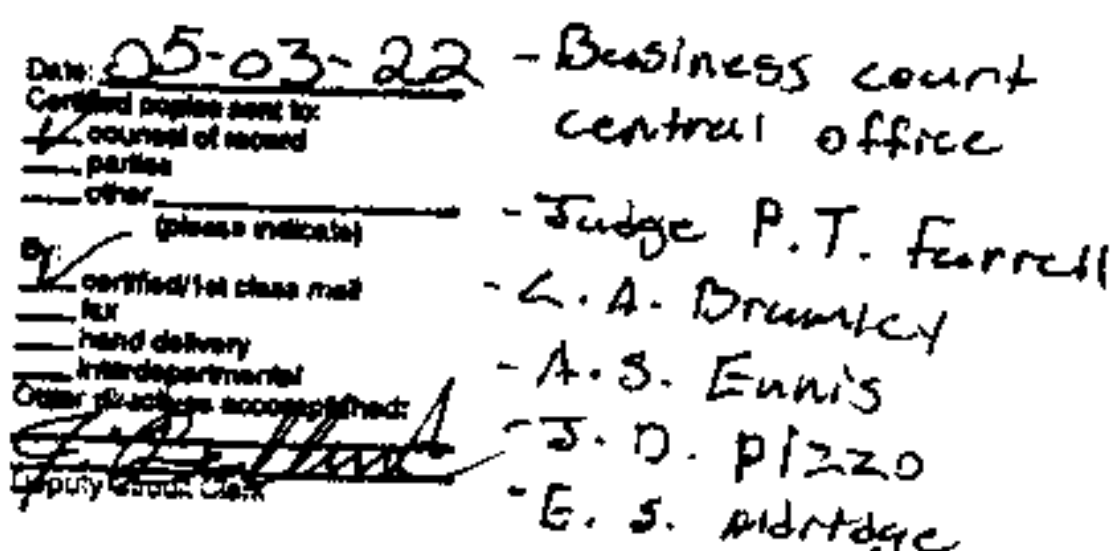 Date: 05-03-22
Certified copies sent to:
✓ counsel of record
parties
other
(please indicate)
By:
✓ certified/1st class mail
fax
hand delivery
interdepartmental
Other directives accomplished:
Deputy Circuit Clerk
- Business court
central office
- Judge P.T. Farrell
- A. S. Ennis
- J. D. Pizzo
- E. S. Aldridge